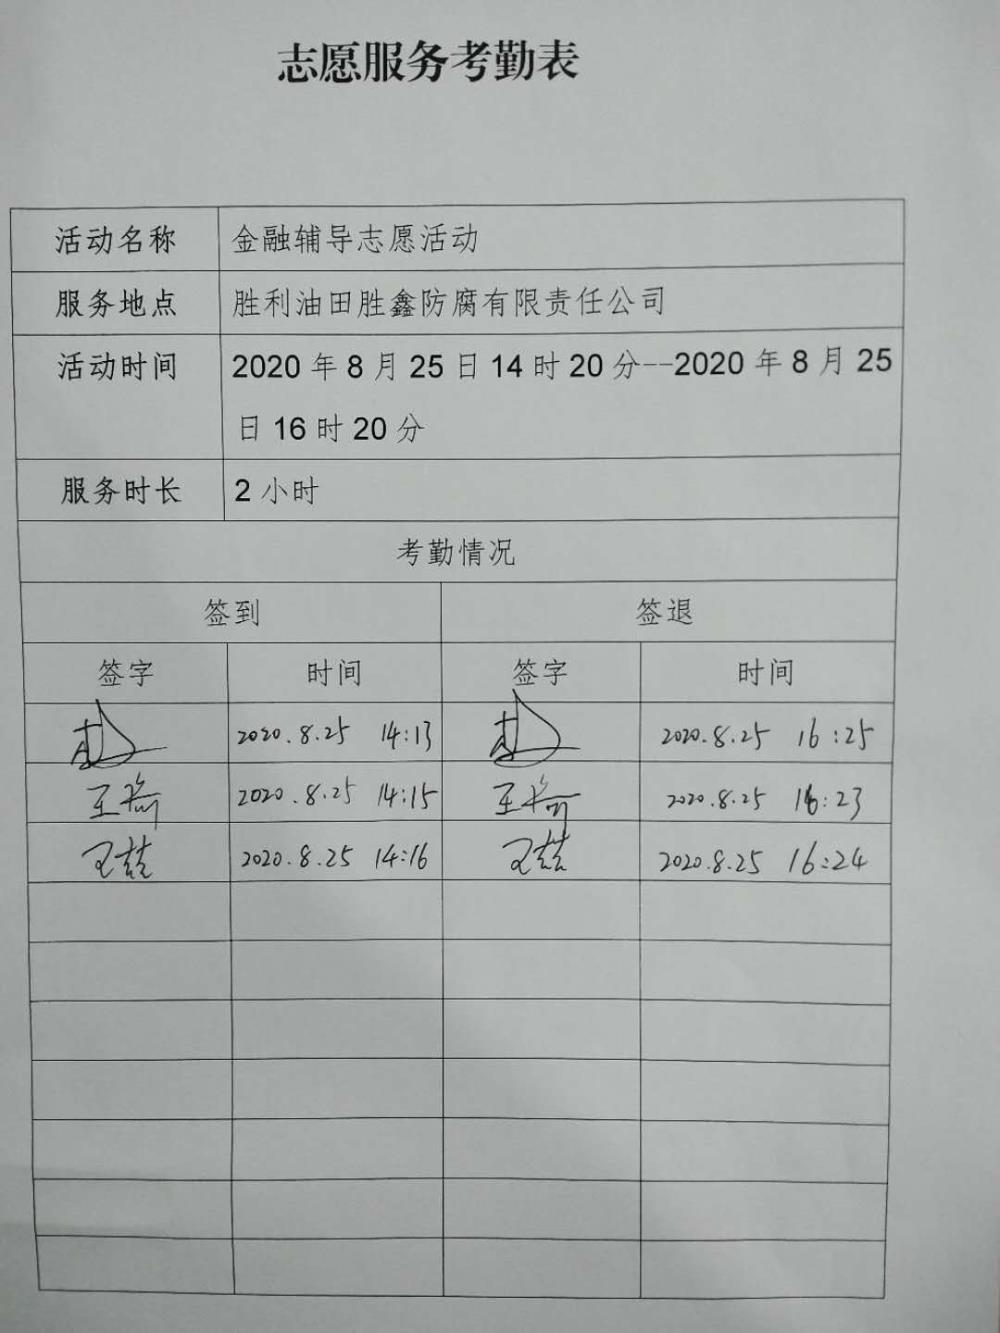 志愿服务考勤表
活动名称 金融辅导志愿活动
服务地点 胜利油田胜鑫防腐有限责任公司
活动时间 2020 年 8 月 25 日 14 时 20 分--2020 年 8 月 25
日 16 时 20 分
服务时长 2 小时
考勤情况
签到 签退
签字 时间 签字 时间
2020.8.25 14:13 2020.8.25 16:25
2020.8.25 14:15 2020.8.25 16:23
王喆 2020.8.25 14:16 王喆 2020.8.25 16:24